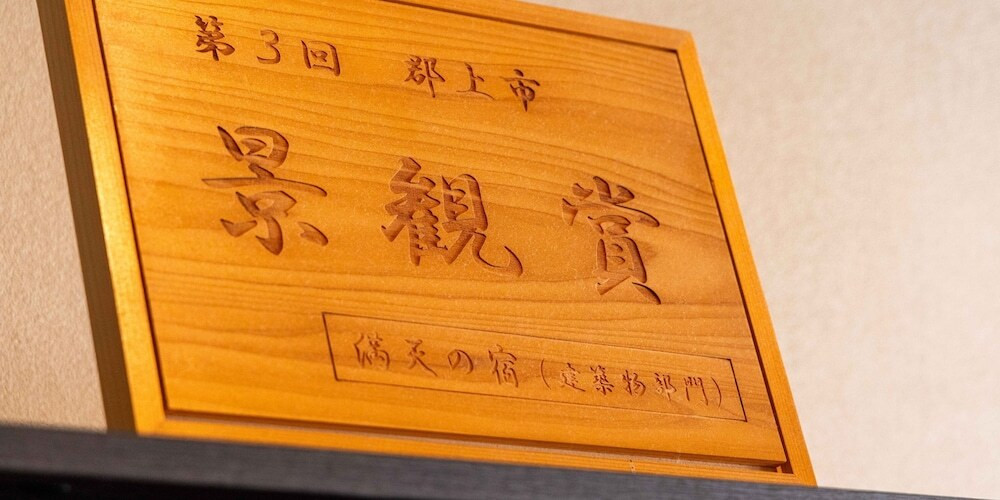 第3回 郡上市
景観賞
満天の宿(建築物部門)